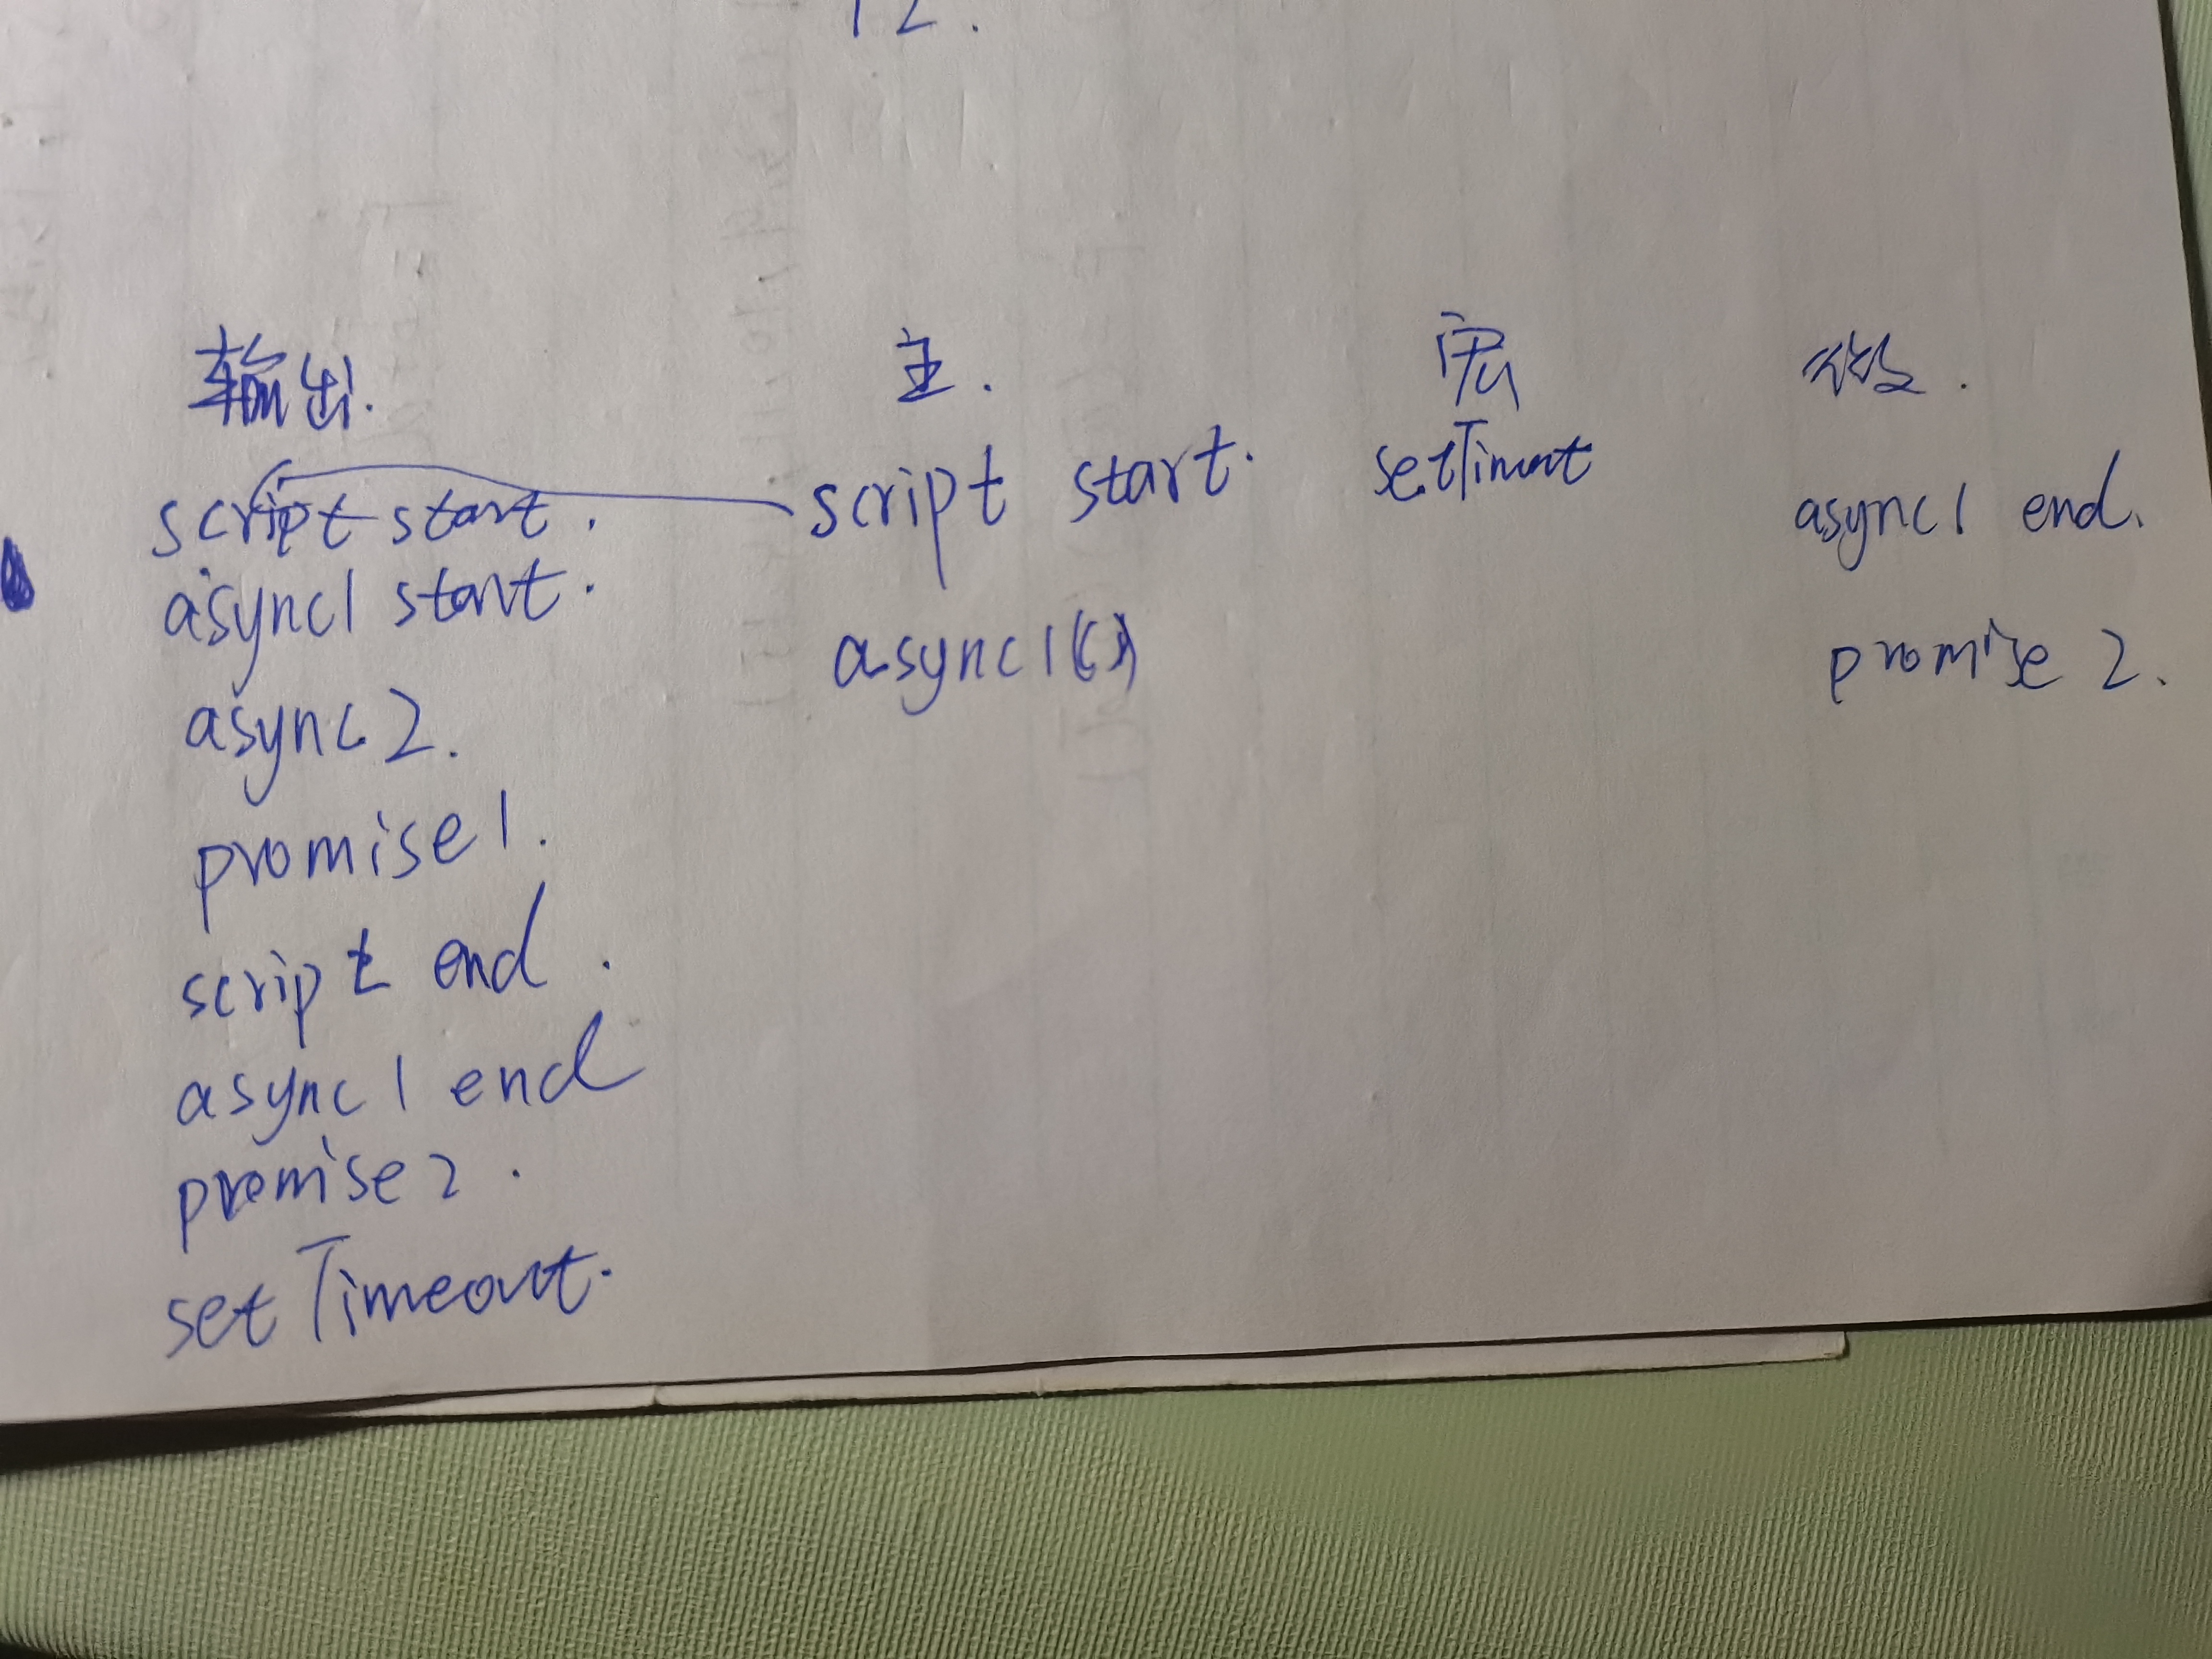 12.
输出. 主. 宏 微.
script start. script start. setTimeout async1 end.
async1 start. async1() promise 2.
async2.
promise1.
script end.
async1 end
promise2.
setTimeout.